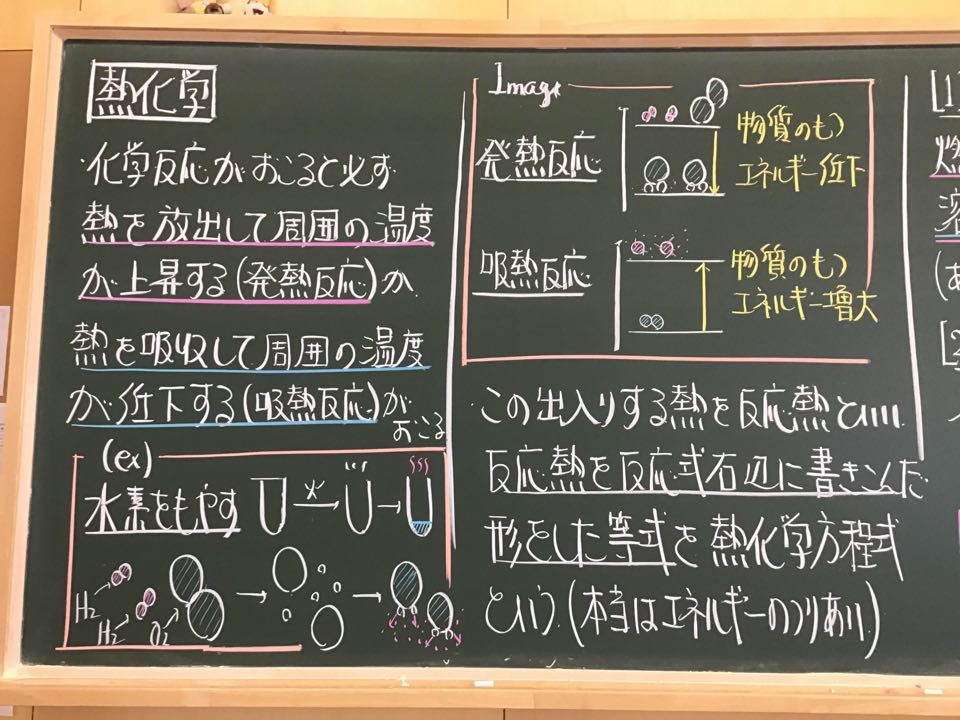 熱化学
化学反応がおこると必ず
熱を放出して周囲の温度
が上昇する(発熱反応)か
熱を吸収して周囲の温度
が低下する(吸熱反応)が
おこる
(ex)
水素をもやす
火
H₂
H₂
O₂
Image
発熱反応
物質のもつ
エネルギー低下
吸熱反応
物質のもつ
エネルギー増大
この出入りする熱を反応熱といい
反応熱を反応式右辺に書きこんだ
形をした等式を熱化学方程式
という(本当はエネルギーのつりあい)
[1]
燃
溶
(あ
[2]